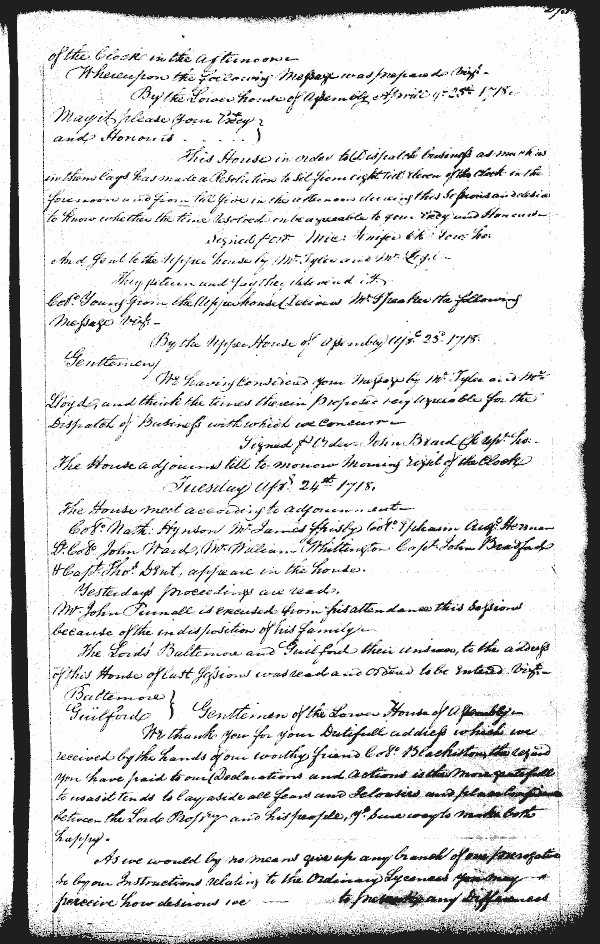 of the Clock in the afternoon
Whereupon the following Message was prepared Vizt.
By the Lower house of Assembly Aprill ye 23d. 1718.
May it please your Excy
and Honours
This House in order to Dispatch business as much as
in them lays has made a Resolution to sit from eight till eleven of the Clock in the
forenoon and from till five in the afternoon during this Sessions and desire
to know whether the time resolved on be agreeable to your Excy and Honours
Signed p Ordr. Mic: Jenifer Ck. Low. ho.
And sent to the Upper house by Mr. Tyler and Mr. Loyd.
They return and say they delivered it.
Coll. Young from the Upper house Delivers Mr. Speaker the following
Message Vizt.
By the Upper House of Assembly Aprl. 23d. 1718.
Gentlemen
We having Considered your Message by Mr. Tyler and Mr.
Lloyd, and think the times therein proposed very agreeable for the
Dispatch of Business with which we concurr
Signed p Order John Beard Cl. uppr. ho.
The House adjourns till to morrow Morning eight of the Clock
Tuesday Aprl. 24th. 1718.
The House meet according to adjournment
Coll. Nath: Hynson Mr. James Frisby Coll. Ephraim Augt. Herman
Lt. Coll. John Ward, Mr. William Whittington Capt. John Bradford
& Capt. Thos. Dent, appeare in the house.
Yesterdays proceedings are read.
Mr. John Tunnell is excused from his attendance this Sessions
because of the indisposition of his family
The Lords Baltemore and Guilford their answer, to the address
of this House of last Sessions was read and ordered to be entered Vizt.
Baltemore }
Guilford } Gentlemen of the Lower House of Assembly
We thank you for your Dutifull address which we
received by the hands of our worthy friend Coll. Blackiston, the regard
you have paid to our Declarations and Actions is the More gratefull
to us as it tends to lay aside all fears and Jelousies and place Confidence
between the Lords Propry and his people, ye. Sure way to make both
happy.
As we would by no means give up any branch of our prerogative
so by our Instructions relating to the Ordinary Lycences you may
perceive how desirous we to prevent any Differences